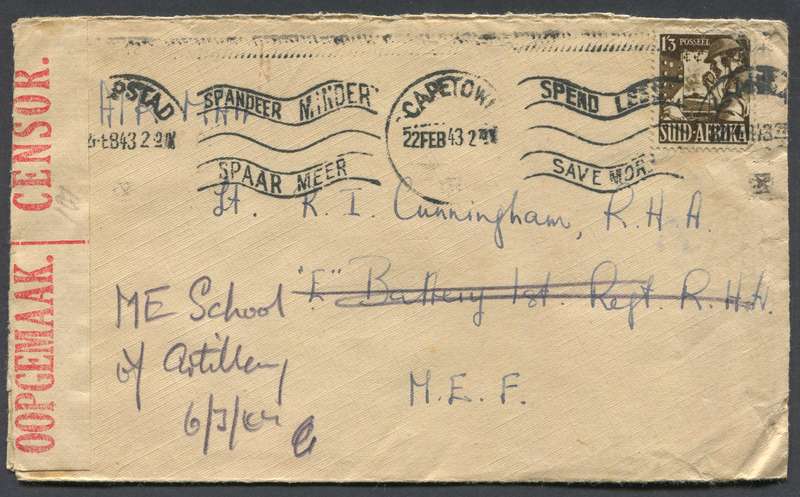 CENSOR.
OOPGEMAAK.
AIR MAIL
PSTAD
EB43 2
SPANDEER MINDER
SPAAR MEER
CAPETOW
22FEB 43 2
SPEND LESS
SAVE MOR
1'3 POSSEEL
SUID-AFRIKA
Lt. R. I. Cunningham, R.H.A.
"E" Battery 1st. Regt R.H.A.
M.E.F.
ME School
of Artillery